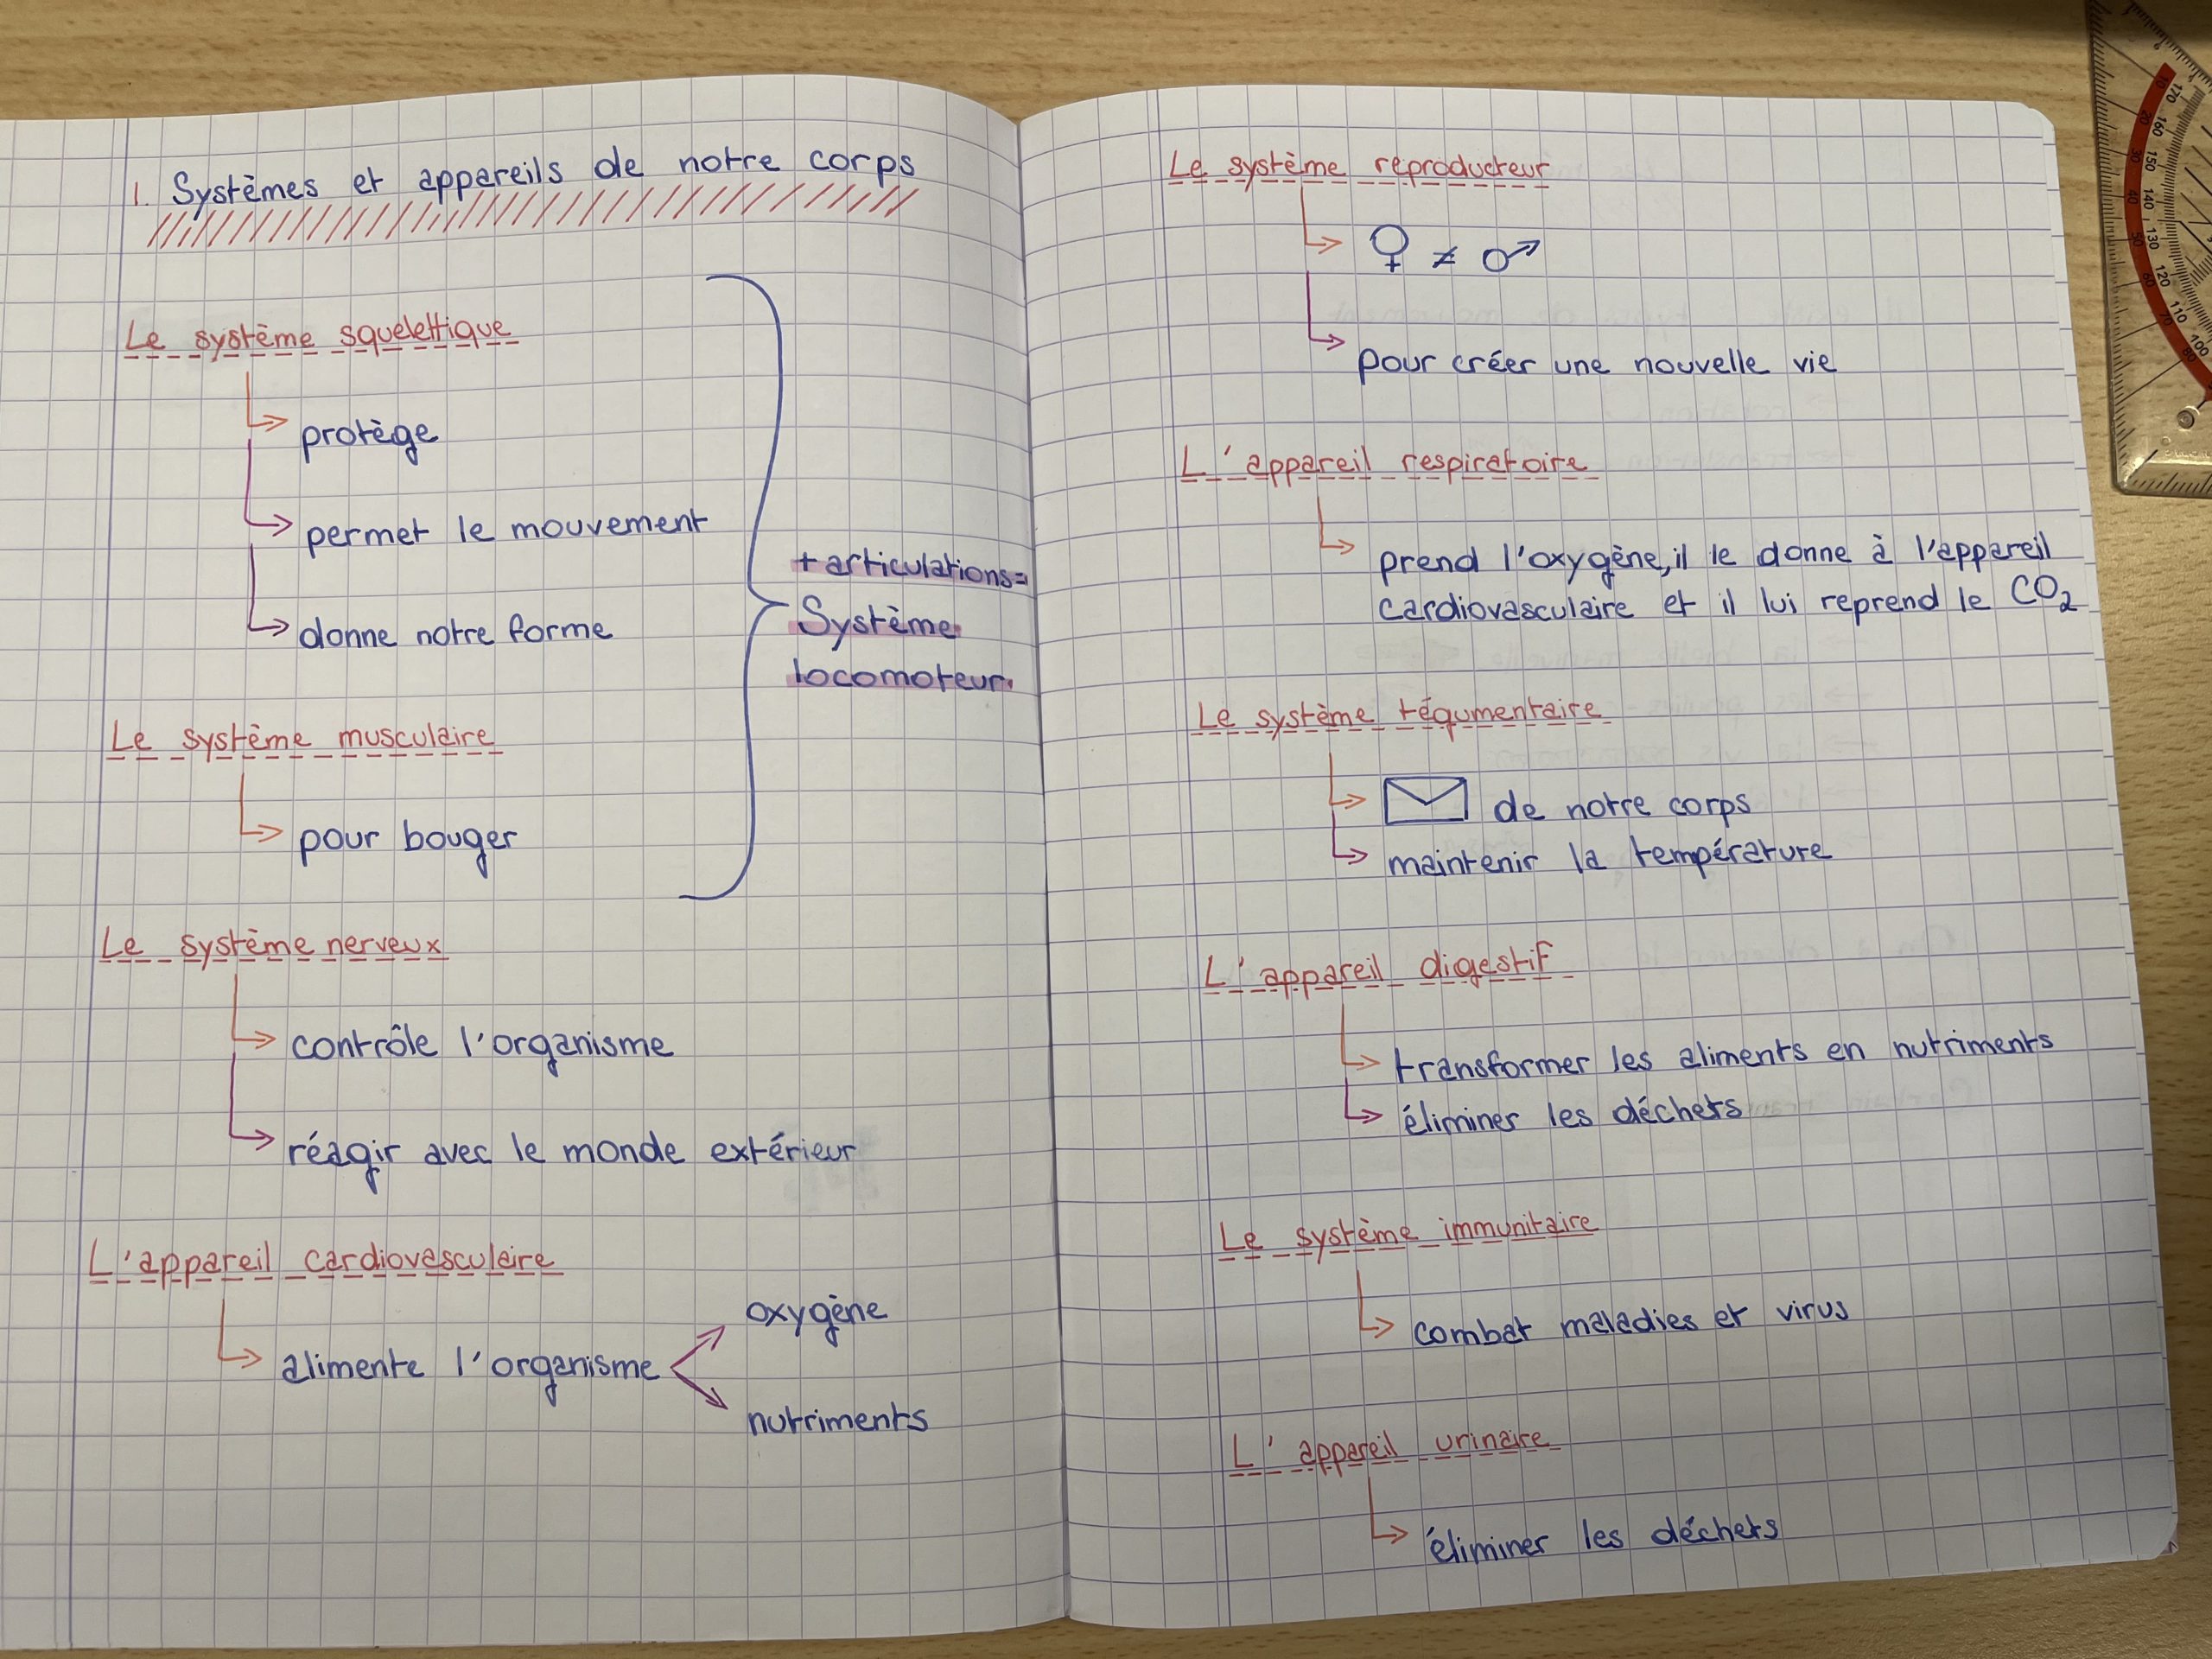 1. Systèmes et appareils de notre corps
Le système squelettique
protège
permet le mouvement
donne notre forme
+ articulations=
Système
locomoteur.
Le système musculaire
pour bouger
Le système nerveux
contrôle l'organisme
réagir avec le monde extérieur
L'appareil cardiovasculaire
alimente l'organisme
oxygène
nutriments
Le système reproducteur
♀ ≠ ♂
pour créer une nouvelle vie
L'appareil respiratoire
prend l'oxygène, il le donne à l'appareil
cardiovasculaire et il lui reprend le CO2
Le système tégumentaire
de notre corps
maintenir la température
L'appareil digestif
transformer les aliments en nutriments
éliminer les déchets
Le système immunitaire
combat maladies et virus
L'appareil urinaire
éliminer les déchets